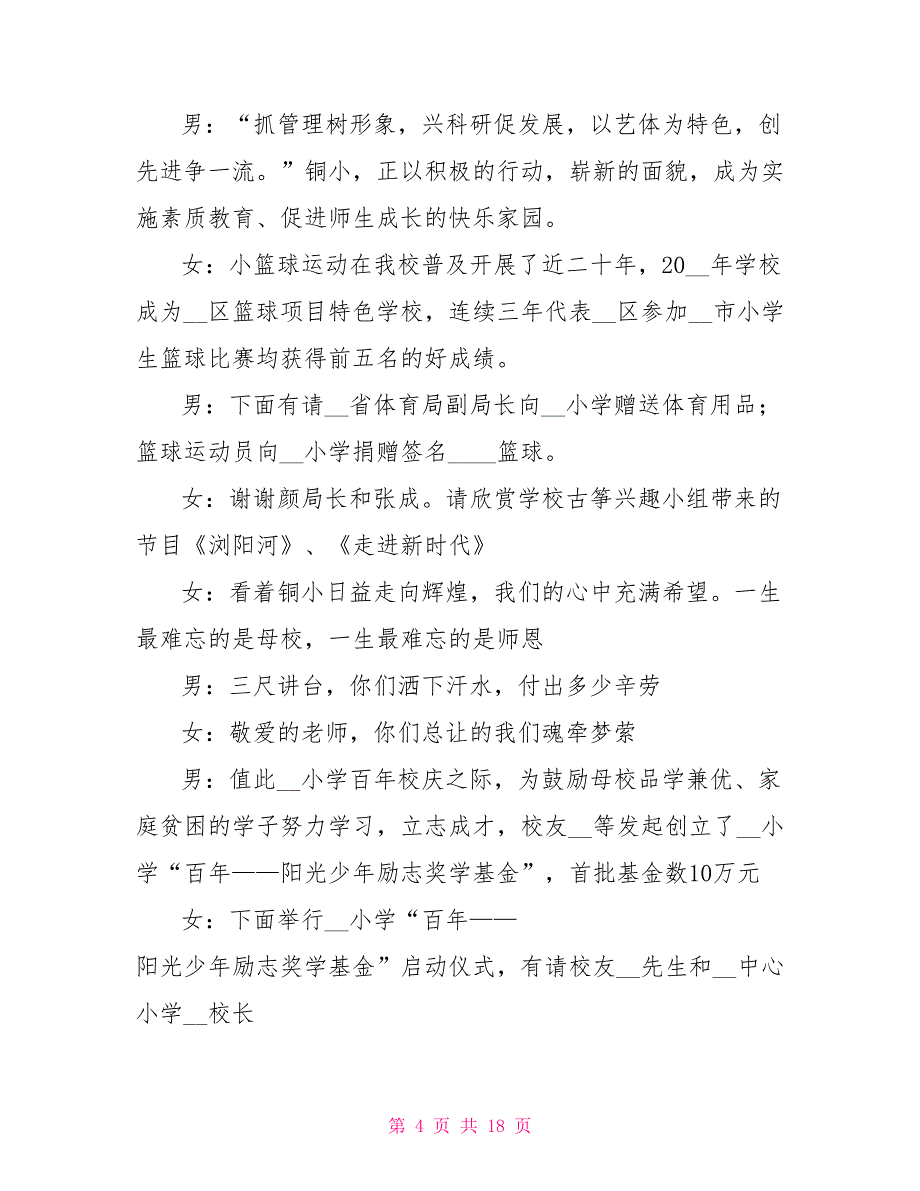 男：“抓管理树形象，兴科研促发展，以艺体为特色，创
先进争一流。”铜小，正以积极的行动，崭新的面貌，成为实
施素质教育、促进师生成长的快乐家园。
女：小篮球运动在我校普及开展了近二十年，20__年学校
成为__区篮球项目特色学校，连续三年代表__区参加__市小学
生篮球比赛均获得前五名的好成绩。
男：下面有请__省体育局副局长向__小学赠送体育用品；
篮球运动员向__小学捐赠签名____篮球。
女：谢谢颜局长和张成。请欣赏学校古筝兴趣小组带来的
节目《浏阳河》、《走进新时代》
女：看着铜小日益走向辉煌，我们的心中充满希望。一生
最难忘的是母校，一生最难忘的是师恩
男：三尺讲台，你们洒下汗水，付出多少辛劳
女：敬爱的老师，你们总让的我们魂牵梦萦
男：值此__小学百年校庆之际，为鼓励母校品学兼优、家
庭贫困的学子努力学习，立志成才，校友__等发起创立了__小
学“百年——阳光少年励志奖学基金”，首批基金数10万元
女：下面举行__小学“百年——
阳光少年励志奖学基金”启动仪式，有请校友__先生和__中心
小学__校长
第 4 页 共 18 页